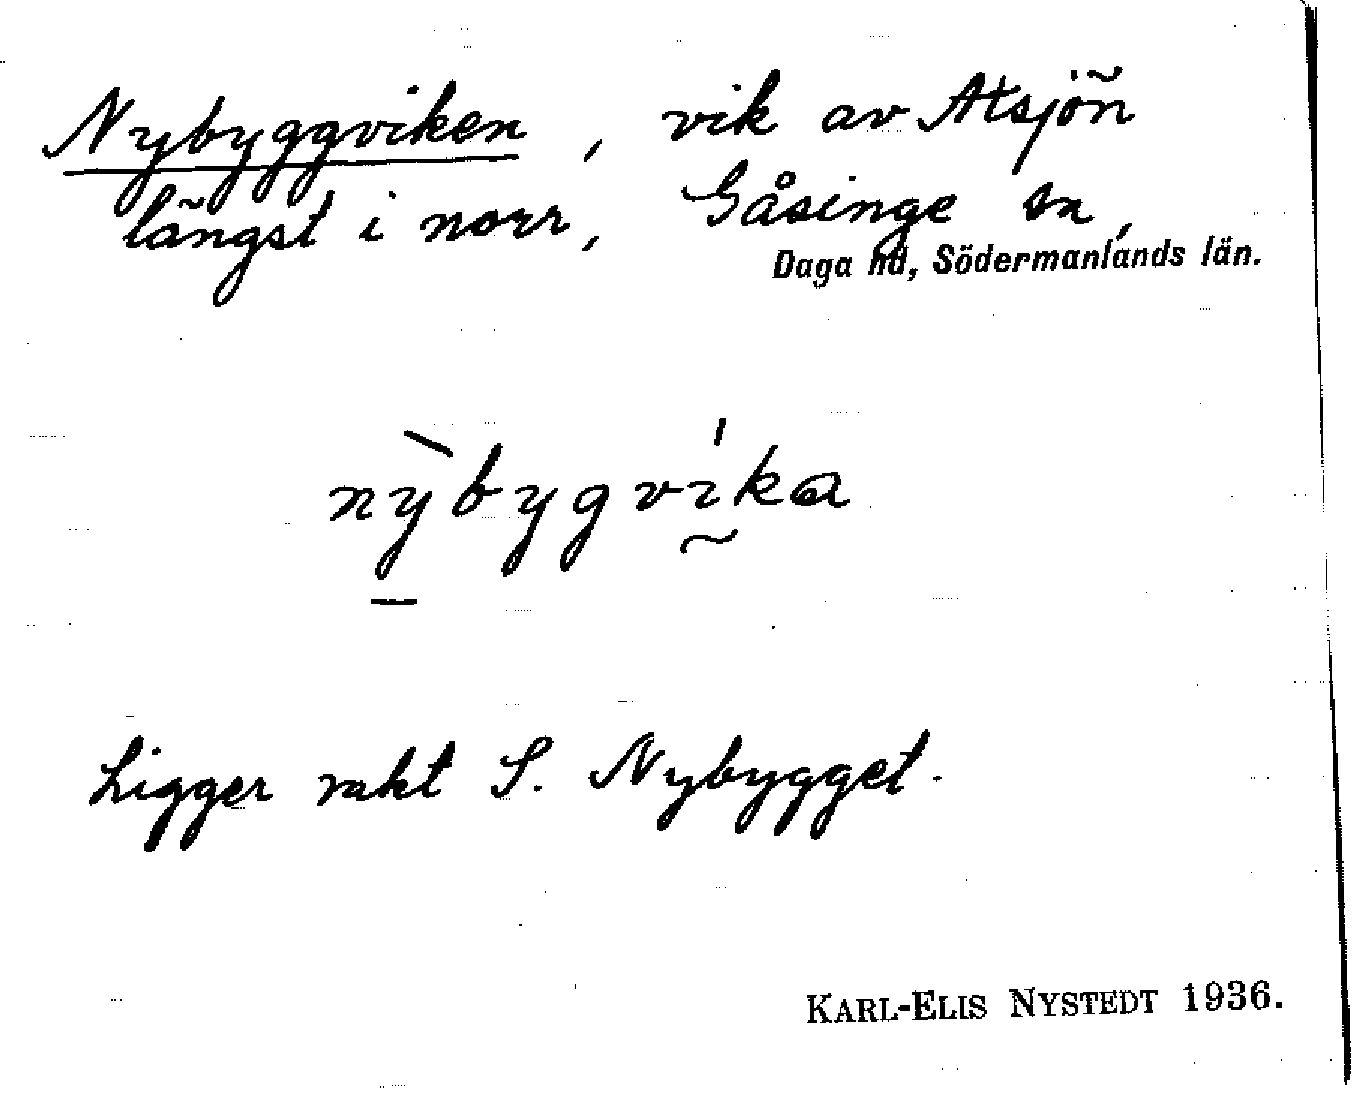 Nybyggviken, vik av Atsjön
längst i norr, Gåsinge sn,
Daga hd, Södermanlands län.
nỳbygvíka
Ligger rakt S. Nybygget.
KARL-ELIS NYSTEDT 1936.